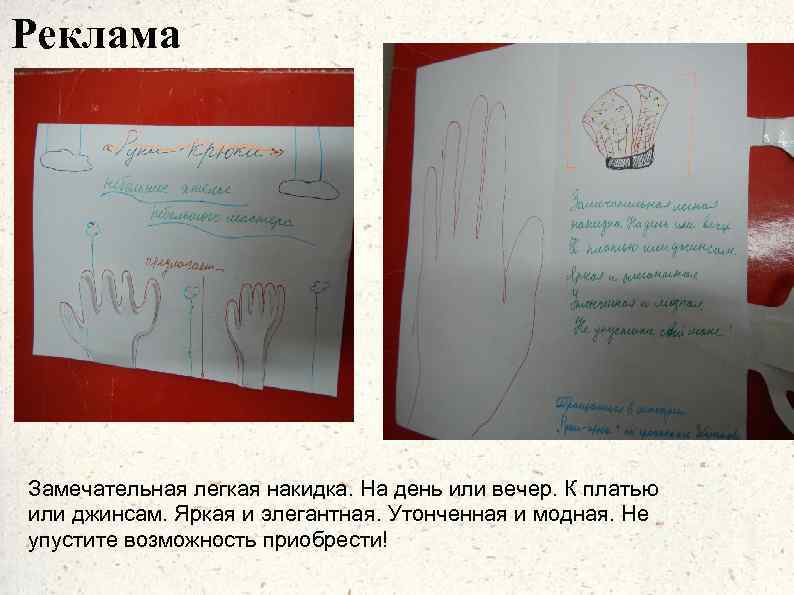 Реклама
«Руки-крюки»
небольшое ателье
небольшого мастера
предлагает
Замечательная легкая
накидка. На день или вечер
К платью или джинсам.
Яркая и элегантная
и модная.
Не упустите свой шанс!
Обращаться в
Замечательная легкая накидка. На день или вечер. К платью
или джинсам. Яркая и элегантная. Утонченная и модная. Не
упустите возможность приобрести!